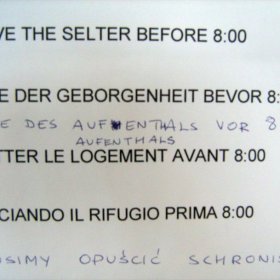 VE THE SELTER BEFORE 8:00
E DER GEBORGENHEIT BEVOR 8:
E DES AUFENTHALS VOR 8
AUFENTHALS
TTER LE LOGEMENT AVANT 8:00
CIANDO IL RIFUGIO PRIMA 8:00
OSIMY OPUŚCIĆ SCHRONIS